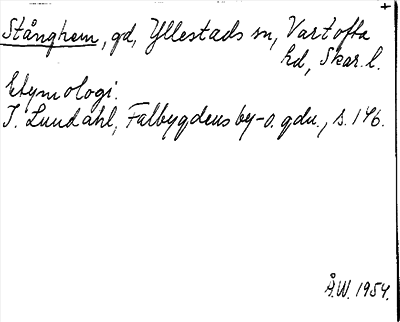 Stånghem, gd, Yllestads sn, Vartofta
hd, Skar. l.
Etymologi.
I. Lundahl, Falbygdens by- o. gdn., s. 146.
Å.W. 1954.